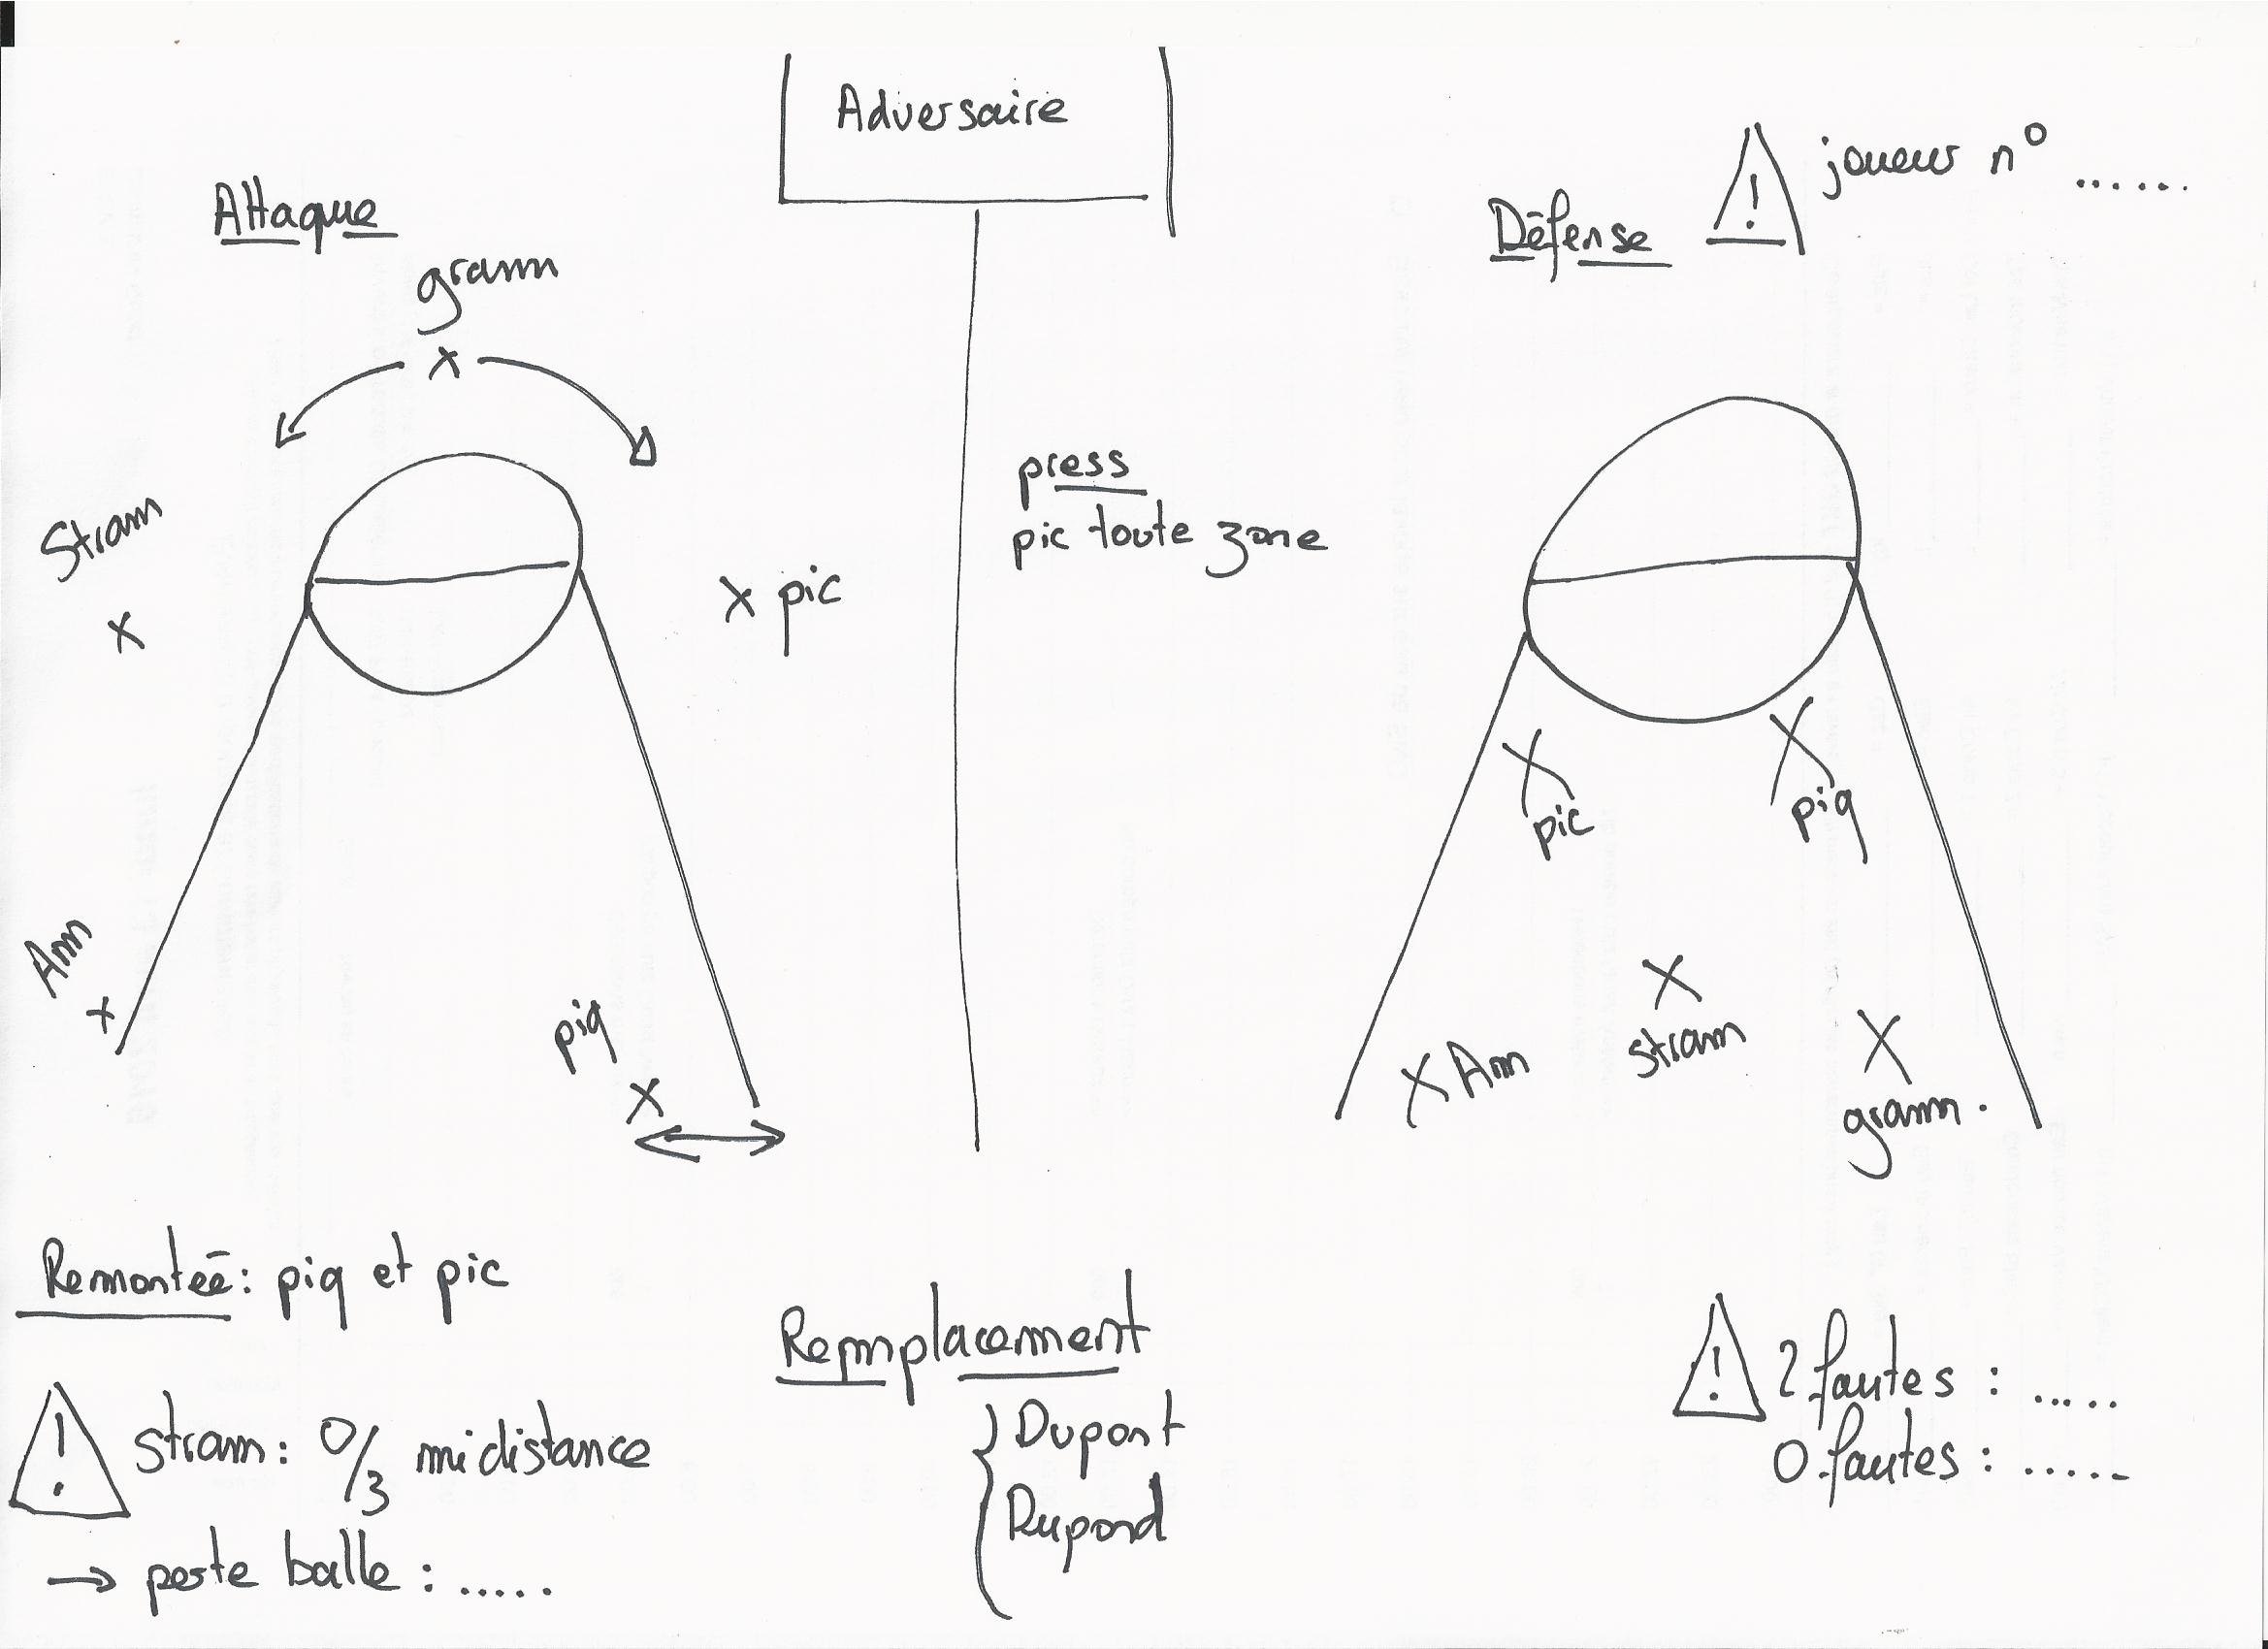 Adversaire
Attaque
gramm
x
Stram
x
x pic
Am
x
piq
x
press
pic toute zone
Défense
! joueur n° ......
X
pic
X
piq
X Am
X
stram
X
gramm.
Remontée : piq et pic
! stram : 0/3 midistance
→ perte balle : .....
Remplacement
Dupont
Dupond
! 2 fautes : .....
0 fautes : .....